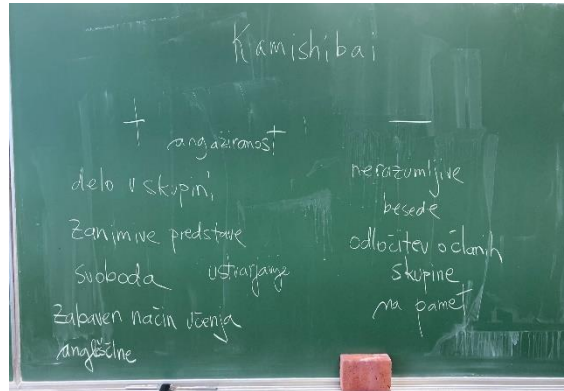 Kamishibai
+
angažiranost
delo v skupini
zanimive predstave
svoboda ustvarjanje
zabaven način učenja
angleščine
—
nerazumljive
besede
odločitev o članih
skupine
na pamet